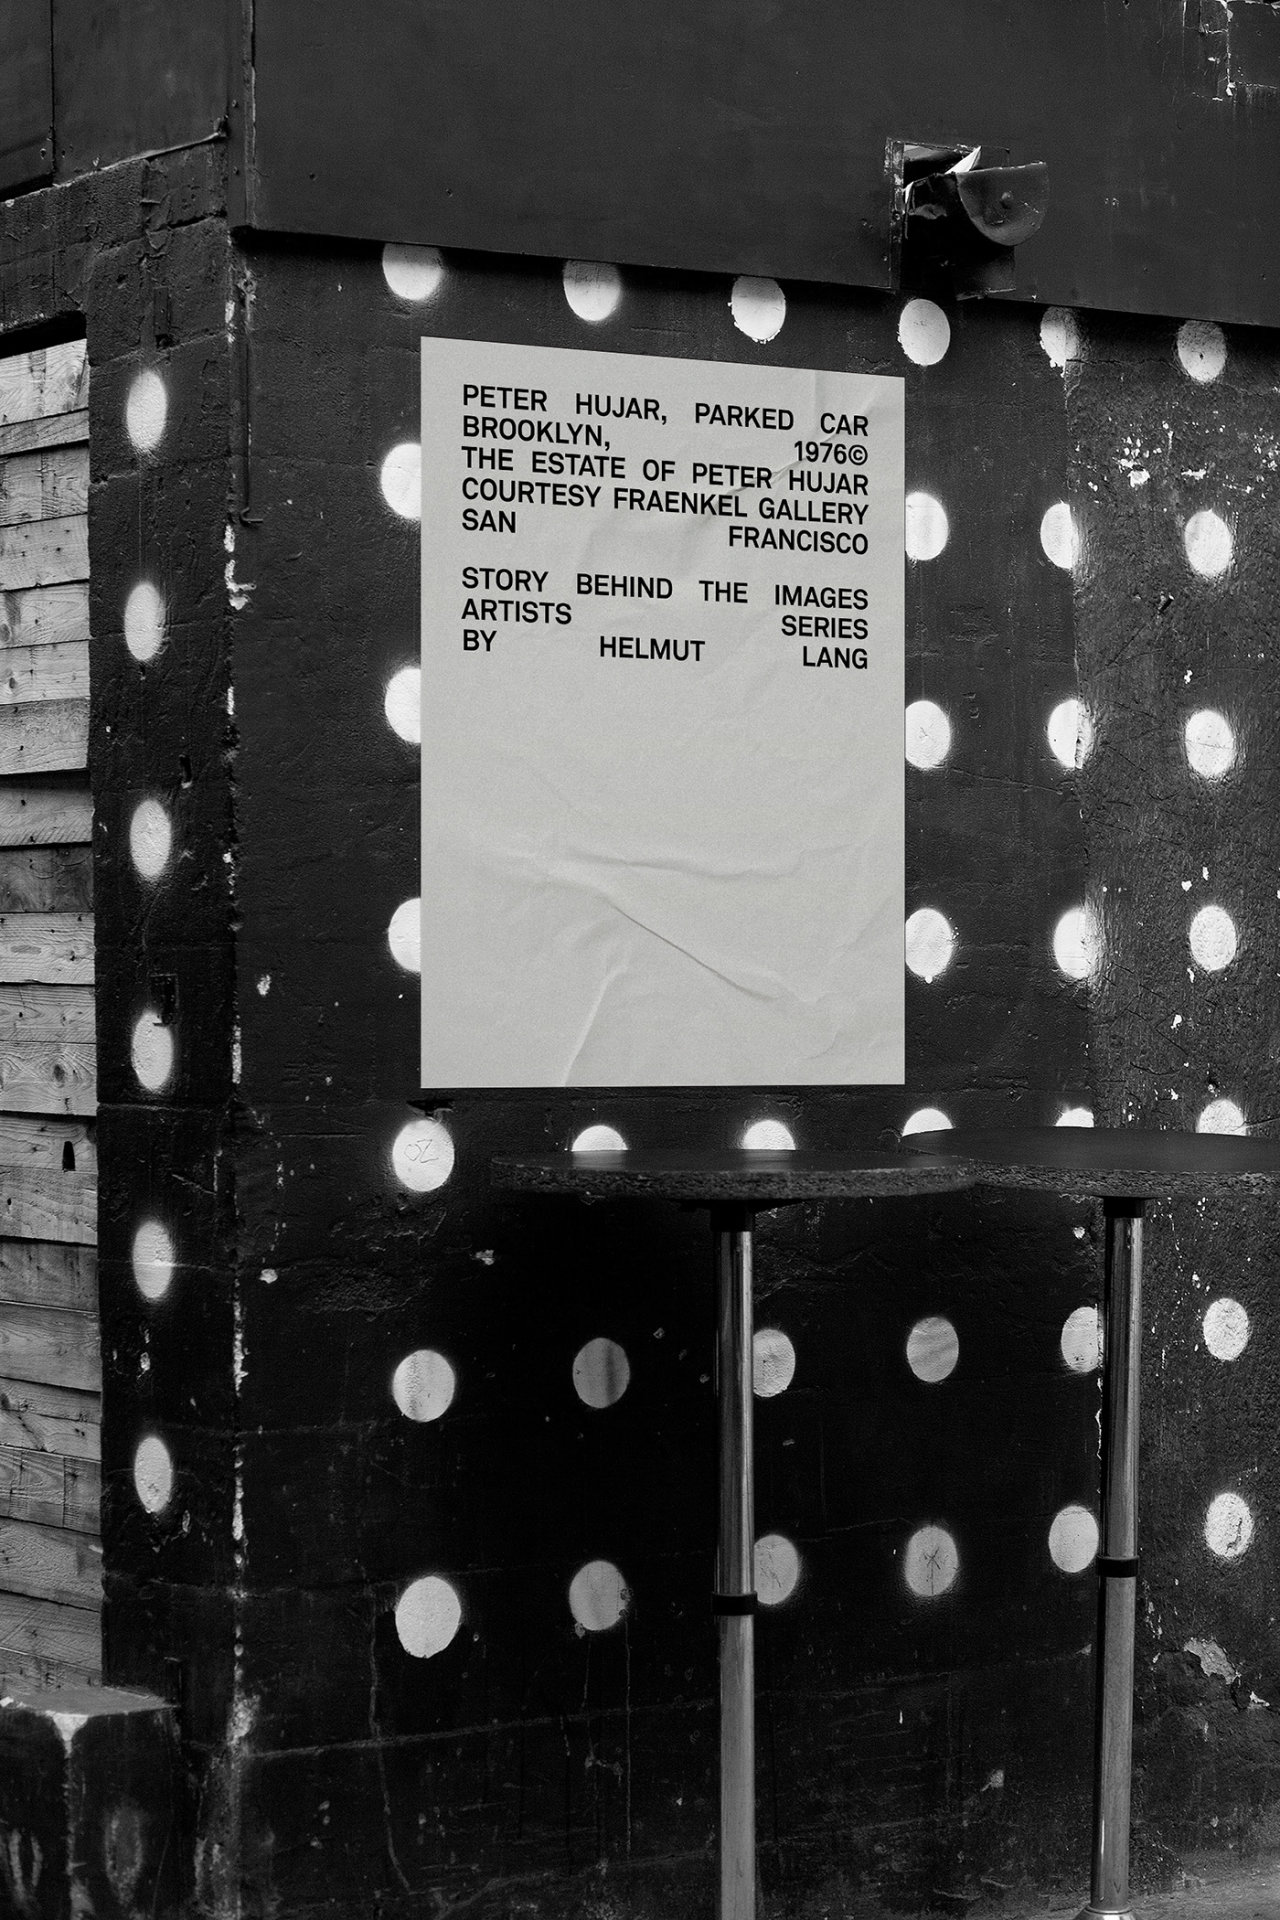 PETER HUJAR, PARKED CAR
BROOKLYN, 1976©
THE ESTATE OF PETER HUJAR
COURTESY FRAENKEL GALLERY
SAN FRANCISCO
STORY BEHIND THE IMAGES
ARTISTS SERIES
BY HELMUT LANG